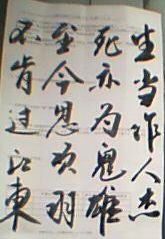 生当作人杰
死亦为鬼雄
至今思项羽
不肯过江東